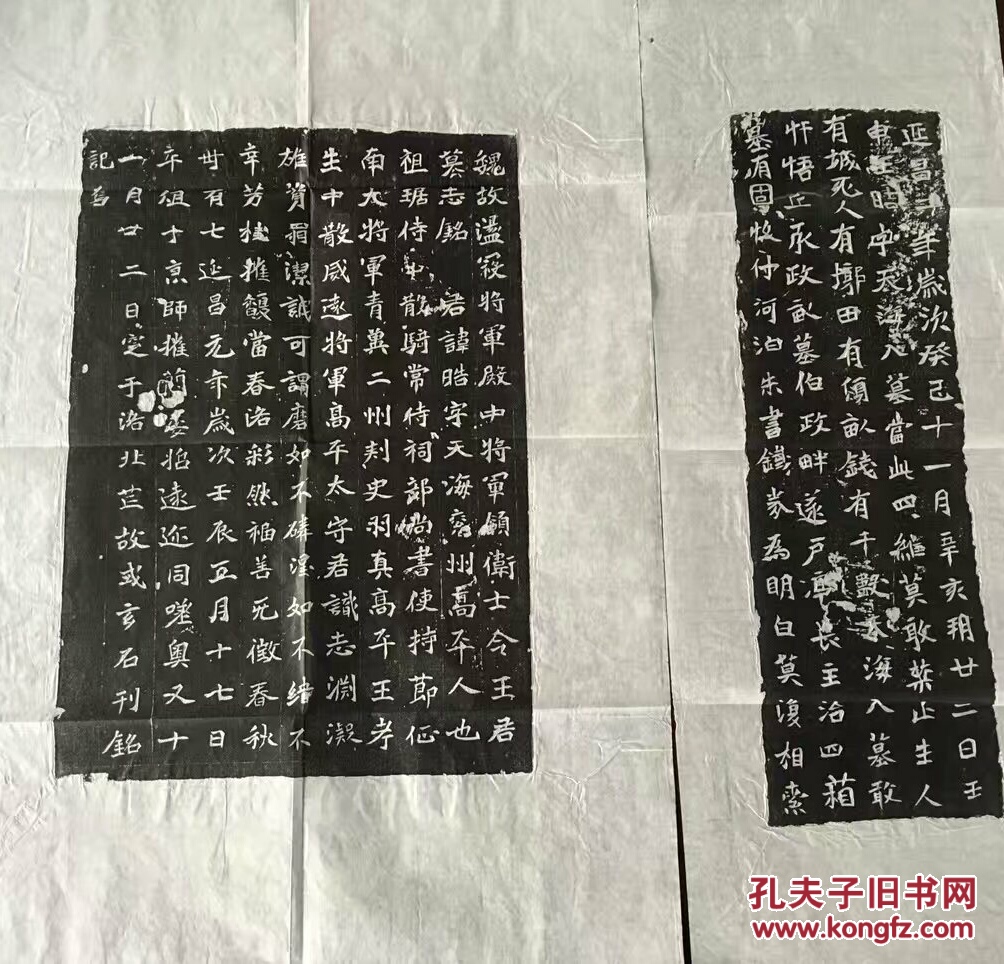 延昌二年歲次癸巳十一月辛亥朔廿二日壬
申王晧字天海入墓當此四維莫敢禁止生人
有城死人有墎田有偭畝錢有千數天海入墓敢
忓悟丘承政畝墓伯政畔遂戶馮長主洽四葙
墓有固收付河泊朱書鐵券為明白莫復相索
魏故盪寇將軍殿中將軍領衛士令王君
墓志銘 君諱晧字天海兗州高平人也
祖琚侍中散騎常侍祠部尚書使持節征
南大將軍青冀二州刺史羽真高平王考
生中散威遠將軍高平太守君識志淵凝
雄資霜潔誠可謂磨如不磷湼如不緇不
幸芳桂摧馥當春落彩然福善旡徴春秋
卅有七延昌元年歲次壬辰五月十七日
卒徂于京師摧蘭奄招遠迩同嗟奥又十
一月廿二日窆于洛北芒故或玄石刊銘
記焉
孔夫子旧书网
www.kongfz.com